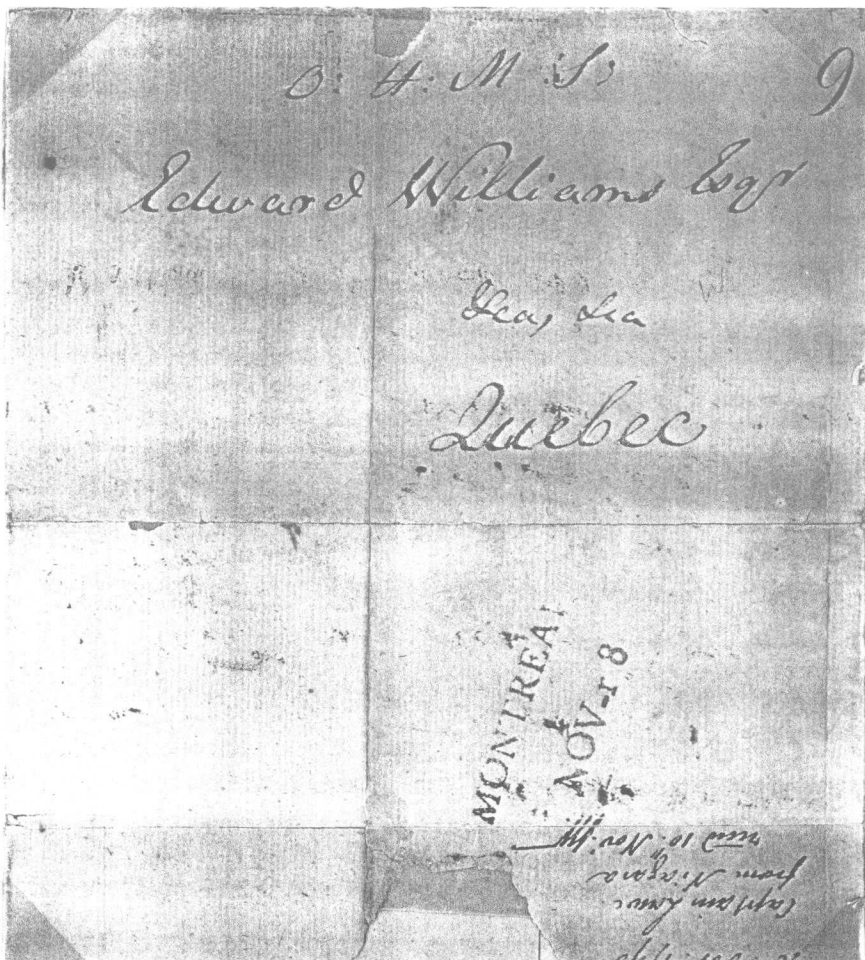 O: H: M: S: 9
Edward Williams Esqr
Quebec
MONTREAL
NOV-r 8
Captain
from Niagara
recd 10. Nov.